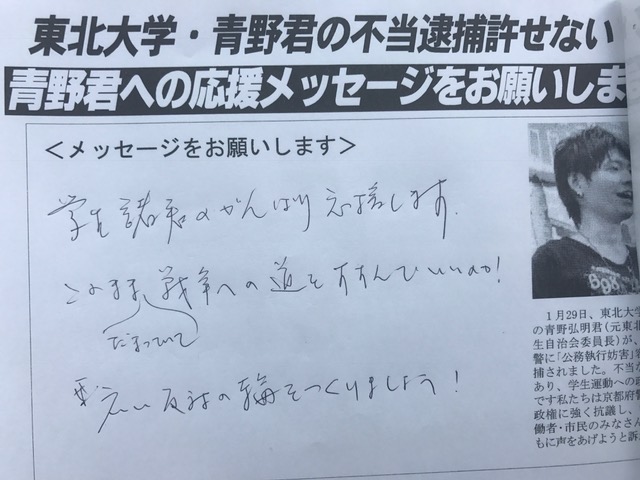 東北大学・青野君の不当逮捕許せない
青野君への応援メッセージをお願いしま
＜メッセージをお願いします＞
学生諸君のがんばり応援します.
このまま戦争への道をすすんでいいのか!
だまっていて
広い反対の輪をつくりましょう!
1月29日、東北大学
の青野弘明君（元東北
生自治会委員長）が、
警に「公務執行妨害」
捕されました。不当な
あり、学生運動への
です私たちは京都府警
政権に強く抗議し、
働者・市民のみなさん
もに声をあげようと訴